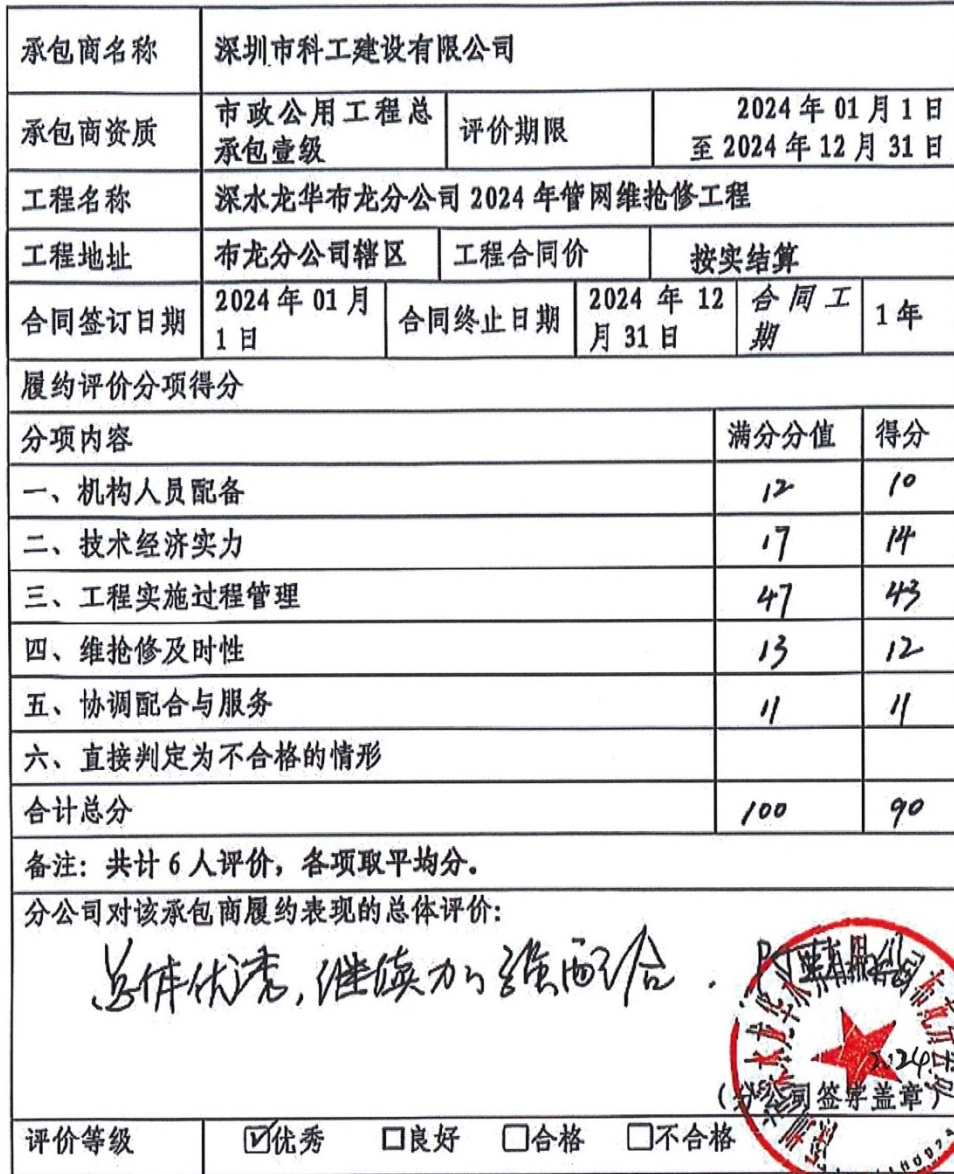 承包商名称 深圳市科工建设有限公司
承包商资质 市政公用工程总承包壹级 评价期限 2024年01月1日至2024年12月31日
工程名称 深水龙华布龙分公司2024年管网维抢修工程
工程地址 布龙分公司辖区 工程合同价 按实结算
合同签订日期 2024年01月1日 合同终止日期 2024年12月31日 合同工期 1年
履约评价分项得分
分项内容 满分分值 得分
一、机构人员配备 12 10
二、技术经济实力 17 14
三、工程实施过程管理 47 43
四、维抢修及时性 13 12
五、协调配合与服务 11 11
六、直接判定为不合格的情形
合计总分 100 90
备注：共计6人评价，各项取平均分。
分公司对该承包商履约表现的总体评价：
总体优秀，继续加强配合．
2024.
（分公司签字盖章）
评价等级 ☑优秀 □良好 □合格 □不合格